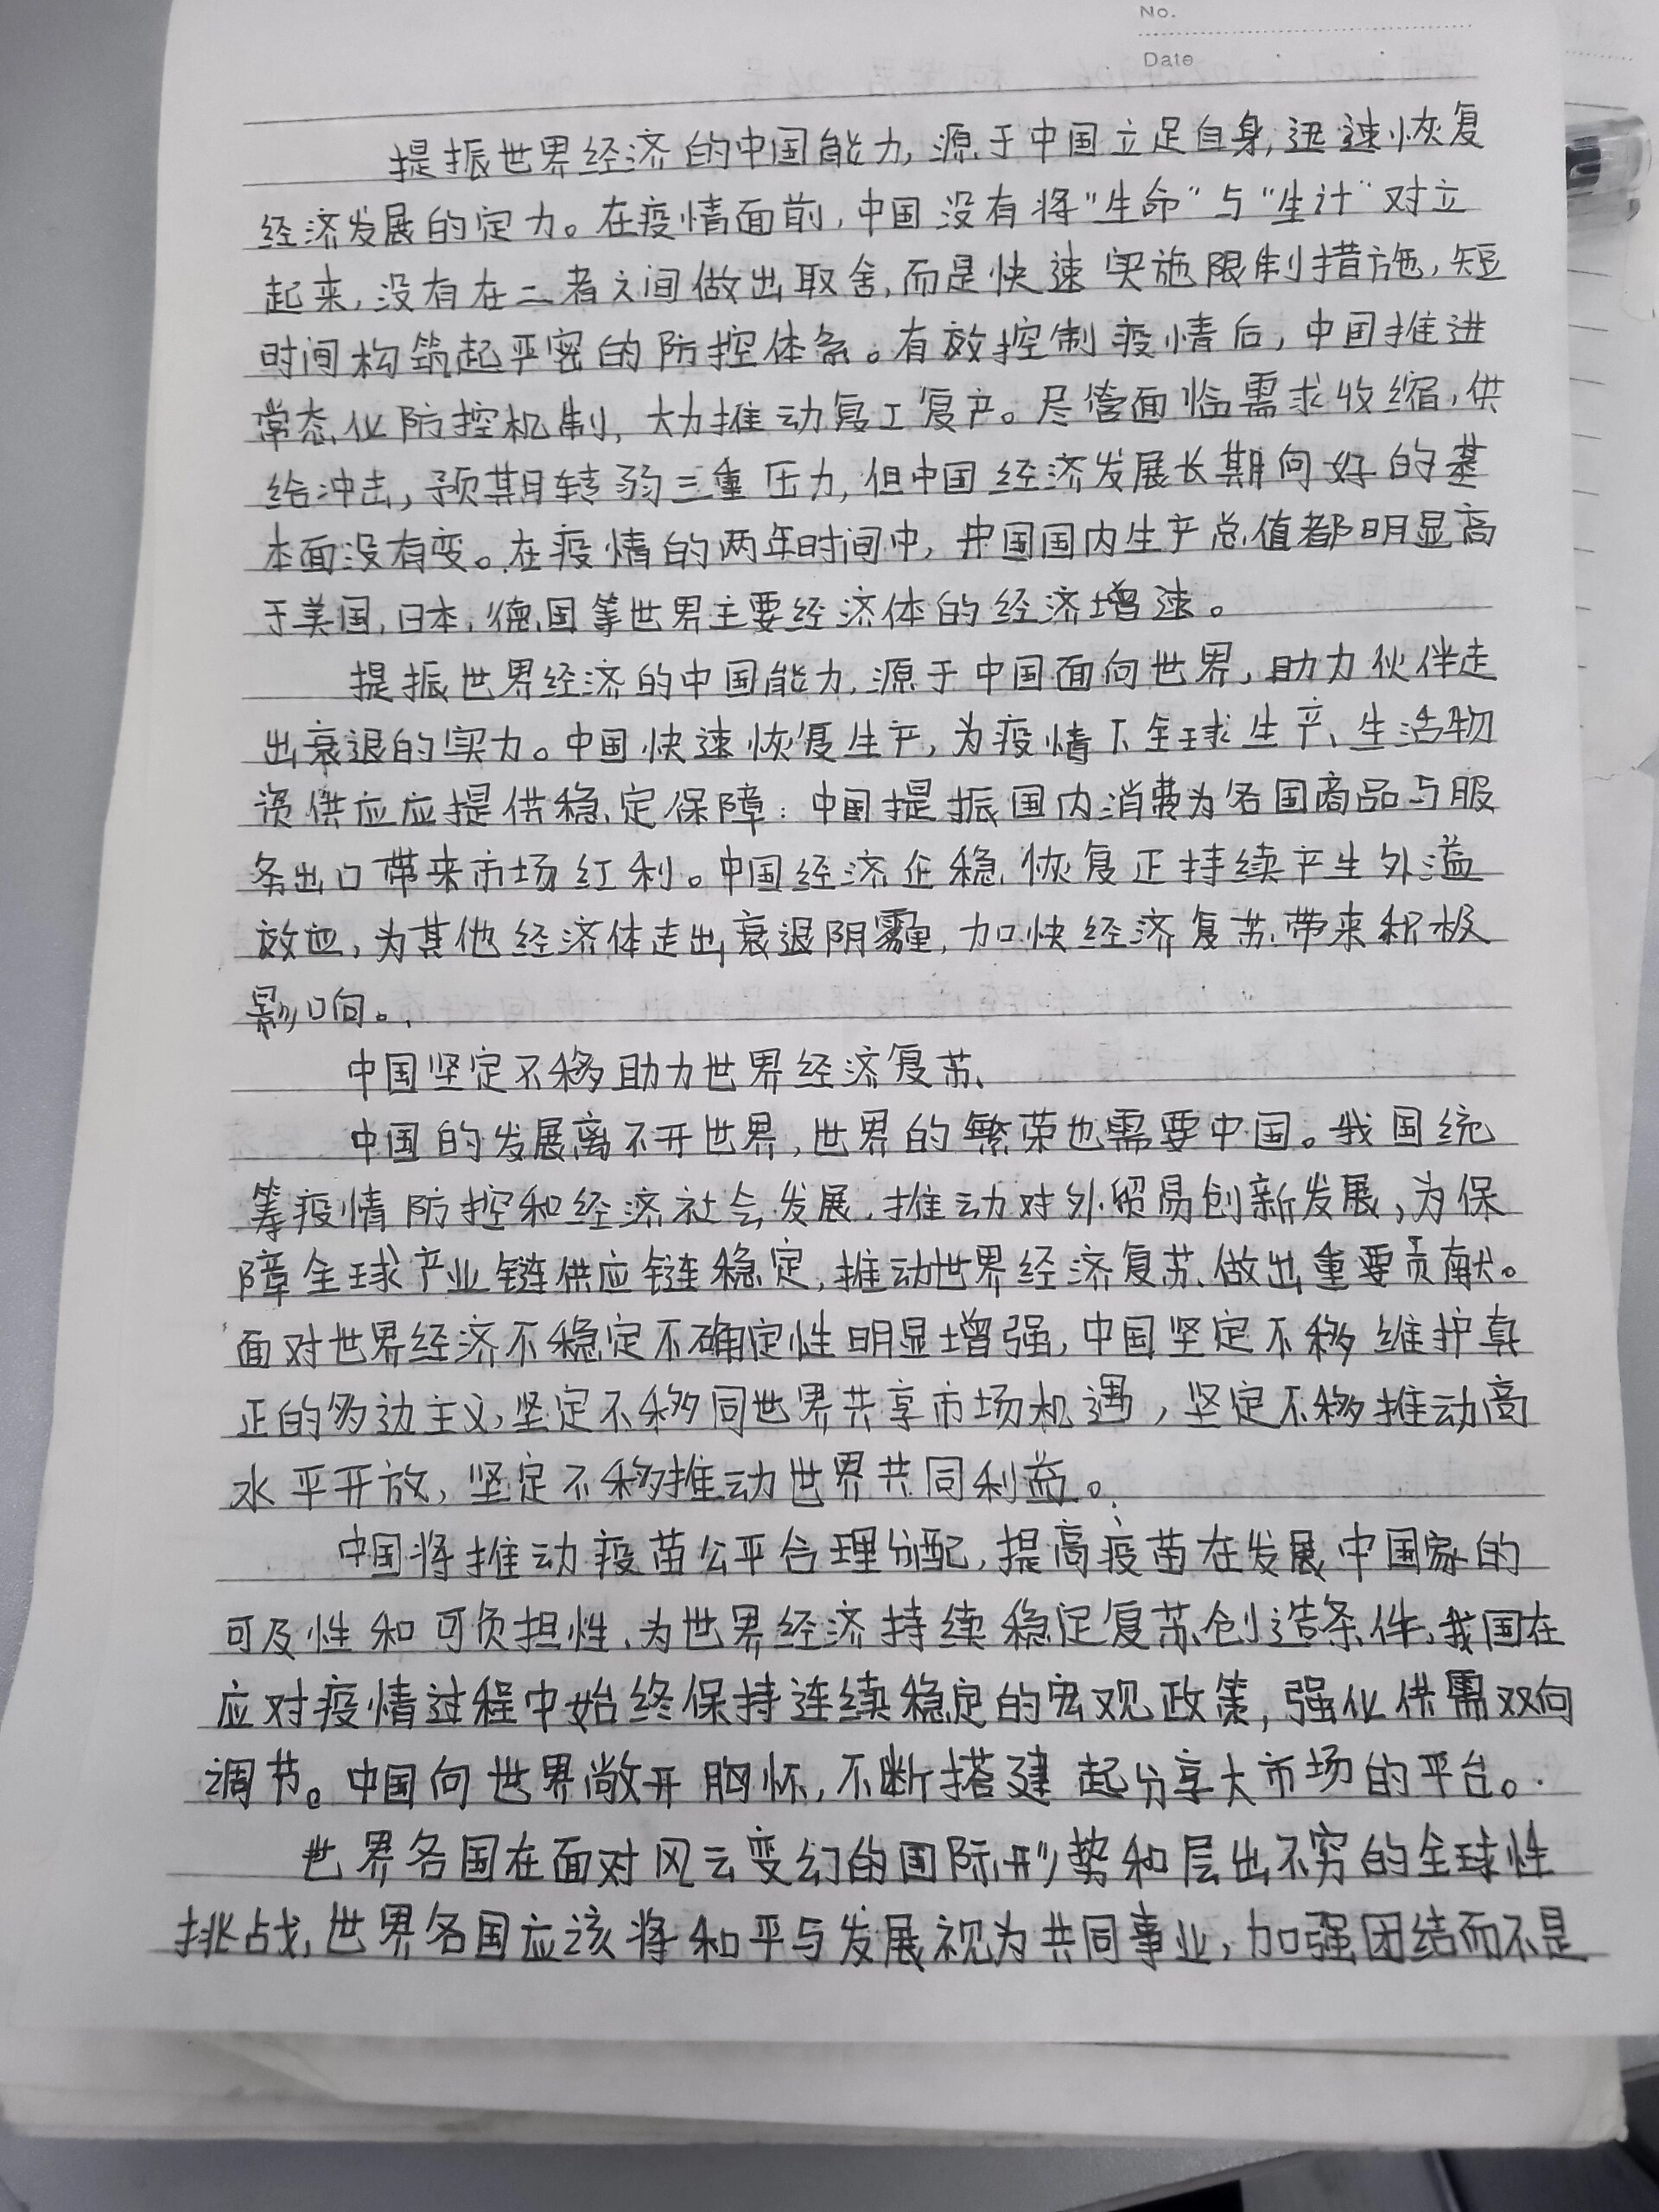 No.
Date
提振世界经济的中国能力,源于中国立足自身,迅速恢复
经济发展的定力。在疫情面前,中国没有将“生命”与“生计”对立
起来,没有在二者之间做出取舍,而是快速实施限制措施,短
时间构筑起严密的防控体系。有效控制疫情后,中国推进
常态化防控机制,大力推动复工复产。尽管面临需求收缩,供
给冲击,预期转弱三重压力,但中国经济发展长期向好的基
本面没有变。在疫情的两年时间中,中国国内生产总值都明显高
于美国,日本,德国等世界主要经济体的经济增速。
提振世界经济的中国能力,源于中国面向世界,助力伙伴走
出衰退的实力。中国快速恢复生产,为疫情下全球生产、生活物
资供应应提供稳定保障:中国提振国内消费为各国商品与服
务出口带来市场红利。中国经济企稳恢复正持续产生外溢
效应,为其他经济体走出衰退阴霾,加快经济复苏带来积极
影响。
中国坚定不移助力世界经济复苏、
中国的发展离不开世界,世界的繁荣也需要中国。我国统
筹疫情防控和经济社会发展,推动对外贸易创新发展,为保
障全球产业链供应链稳定,推动世界经济复苏做出重要贡献。
面对世界经济不稳定不确定性明显增强,中国坚定不移维护真
正的多边主义,坚定不移同世界共享市场机遇,坚定不移推动高
水平开放,坚定不移推动世界共同利益。
中国将推动疫苗公平合理分配,提高疫苗在发展中国家的
可及性和可负担性,为世界经济持续稳定复苏创造条件,我国在
应对疫情过程中始终保持连续稳定的宏观政策,强化供需双向
调节。中国向世界敞开胸怀,不断搭建起分享大市场的平台。
世界各国在面对风云变幻的国际形势和层出不穷的全球性
挑战,世界各国应该将和平与发展视为共同事业,加强团结而不是